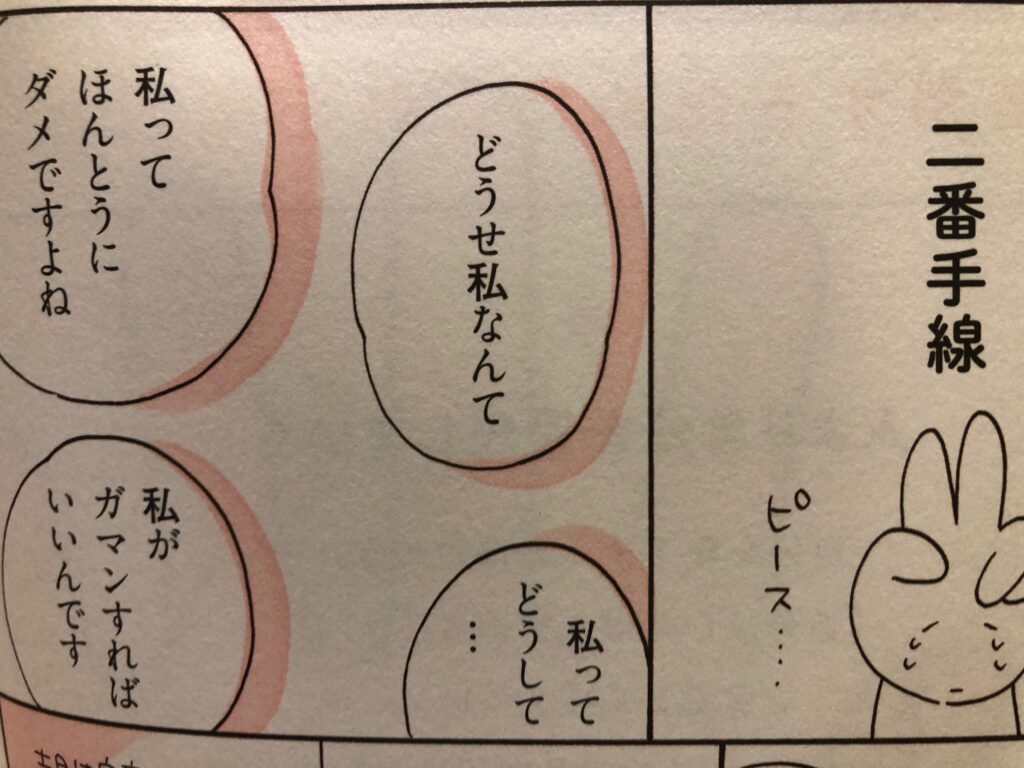 二番手線
ピース……
どうせ私なんて
私って
どうして
…
私って
ほんとうに
ダメですよね
私が
ガマンすれば
いいんです